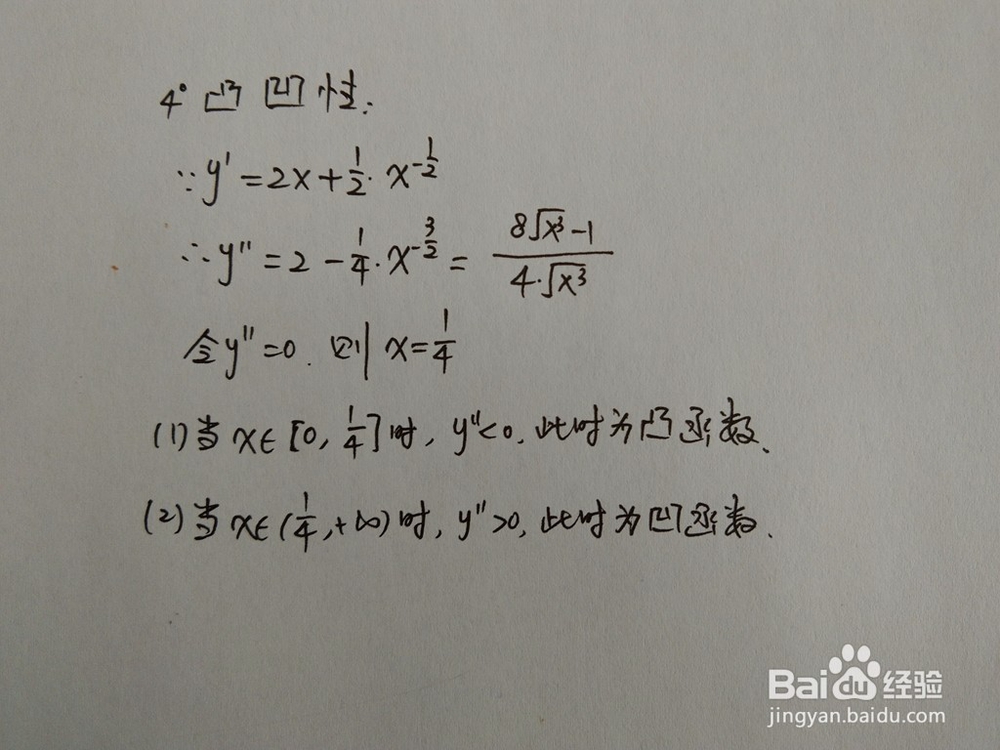 4° 凸凹性:
∵y'=2x+1/2·x^(-1/2)
∴y''=2-1/4·x^(-3/2)=(8√x³-1)/(4·√x³)
令y''=0.则x=1/4
(1)当x∈[0,1/4]时,y''<0.此时为凸函数.
(2)当x∈(1/4,+∞)时,y''>0,此时为凹函数.
Baidu经验
jingyan.baidu.com